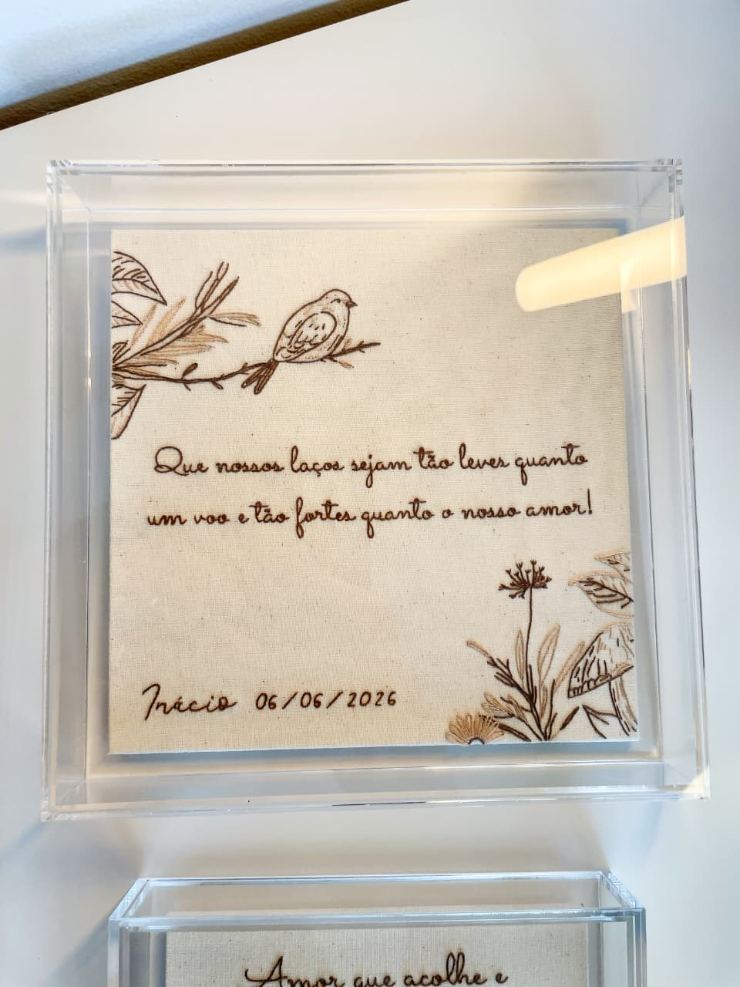 Que nossos laços sejam tão leves quanto
um voo e tão fortes quanto o nosso amor!
Inácio 06/06/2026
Amor que acolhe e